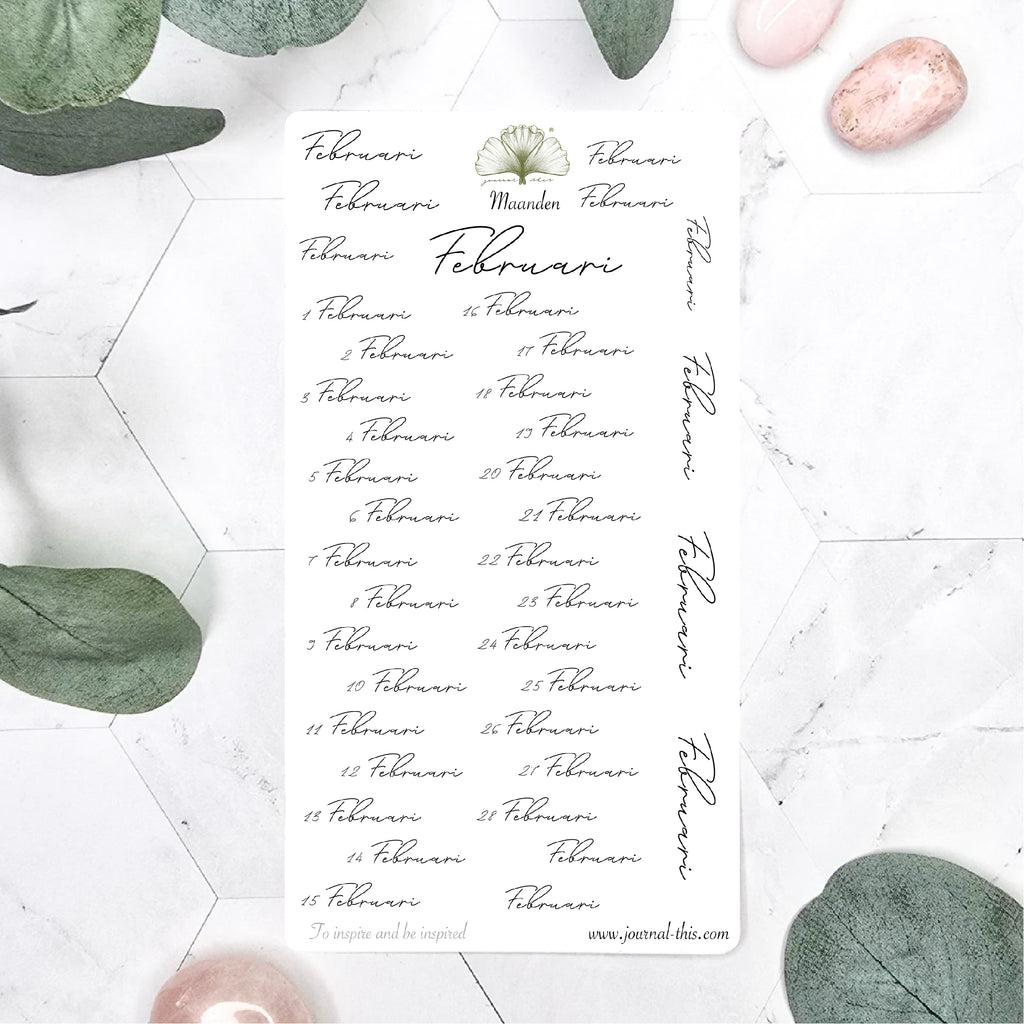 Februari
journal this ®
Februari
Februari
Maanden
Februari
Februari
Februari
1 Februari
16 Februari
2 Februari
17 Februari
3 Februari
18 Februari
4 Februari
19 Februari
5 Februari
20 Februari
6 Februari
21 Februari
7 Februari
22 Februari
8 Februari
23 Februari
9 Februari
24 Februari
10 Februari
25 Februari
11 Februari
26 Februari
12 Februari
27 Februari
13 Februari
28 Februari
14 Februari
Februari
15 Februari
Februari
Februari
Februari
Februari
Februari
To inspire and be inspired
www.journal-this.com